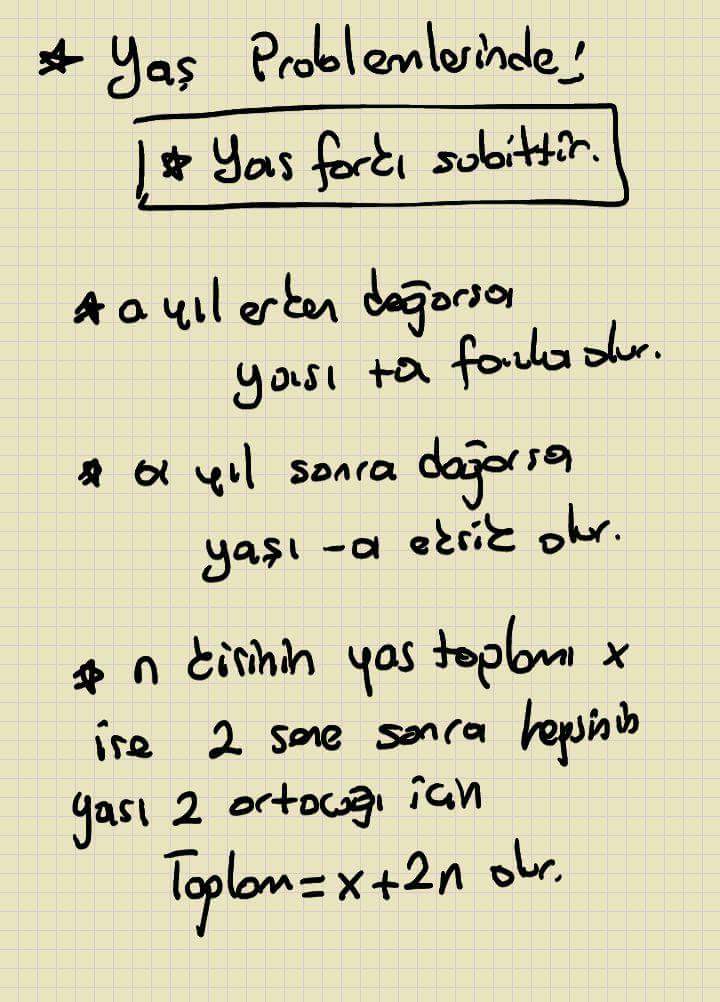 * Yaş Problemlerinde!
* Yas farkı sabittir.
* a yıl erken doğarsa
yaşı +a fazla olur.
* a yıl sonra doğarsa
yaşı -a eksik olur.
* n kişinin yas toplamı x
ise 2 sene sonra hepsinin
yası 2 artacağı için
Toplam = x+2n olur.